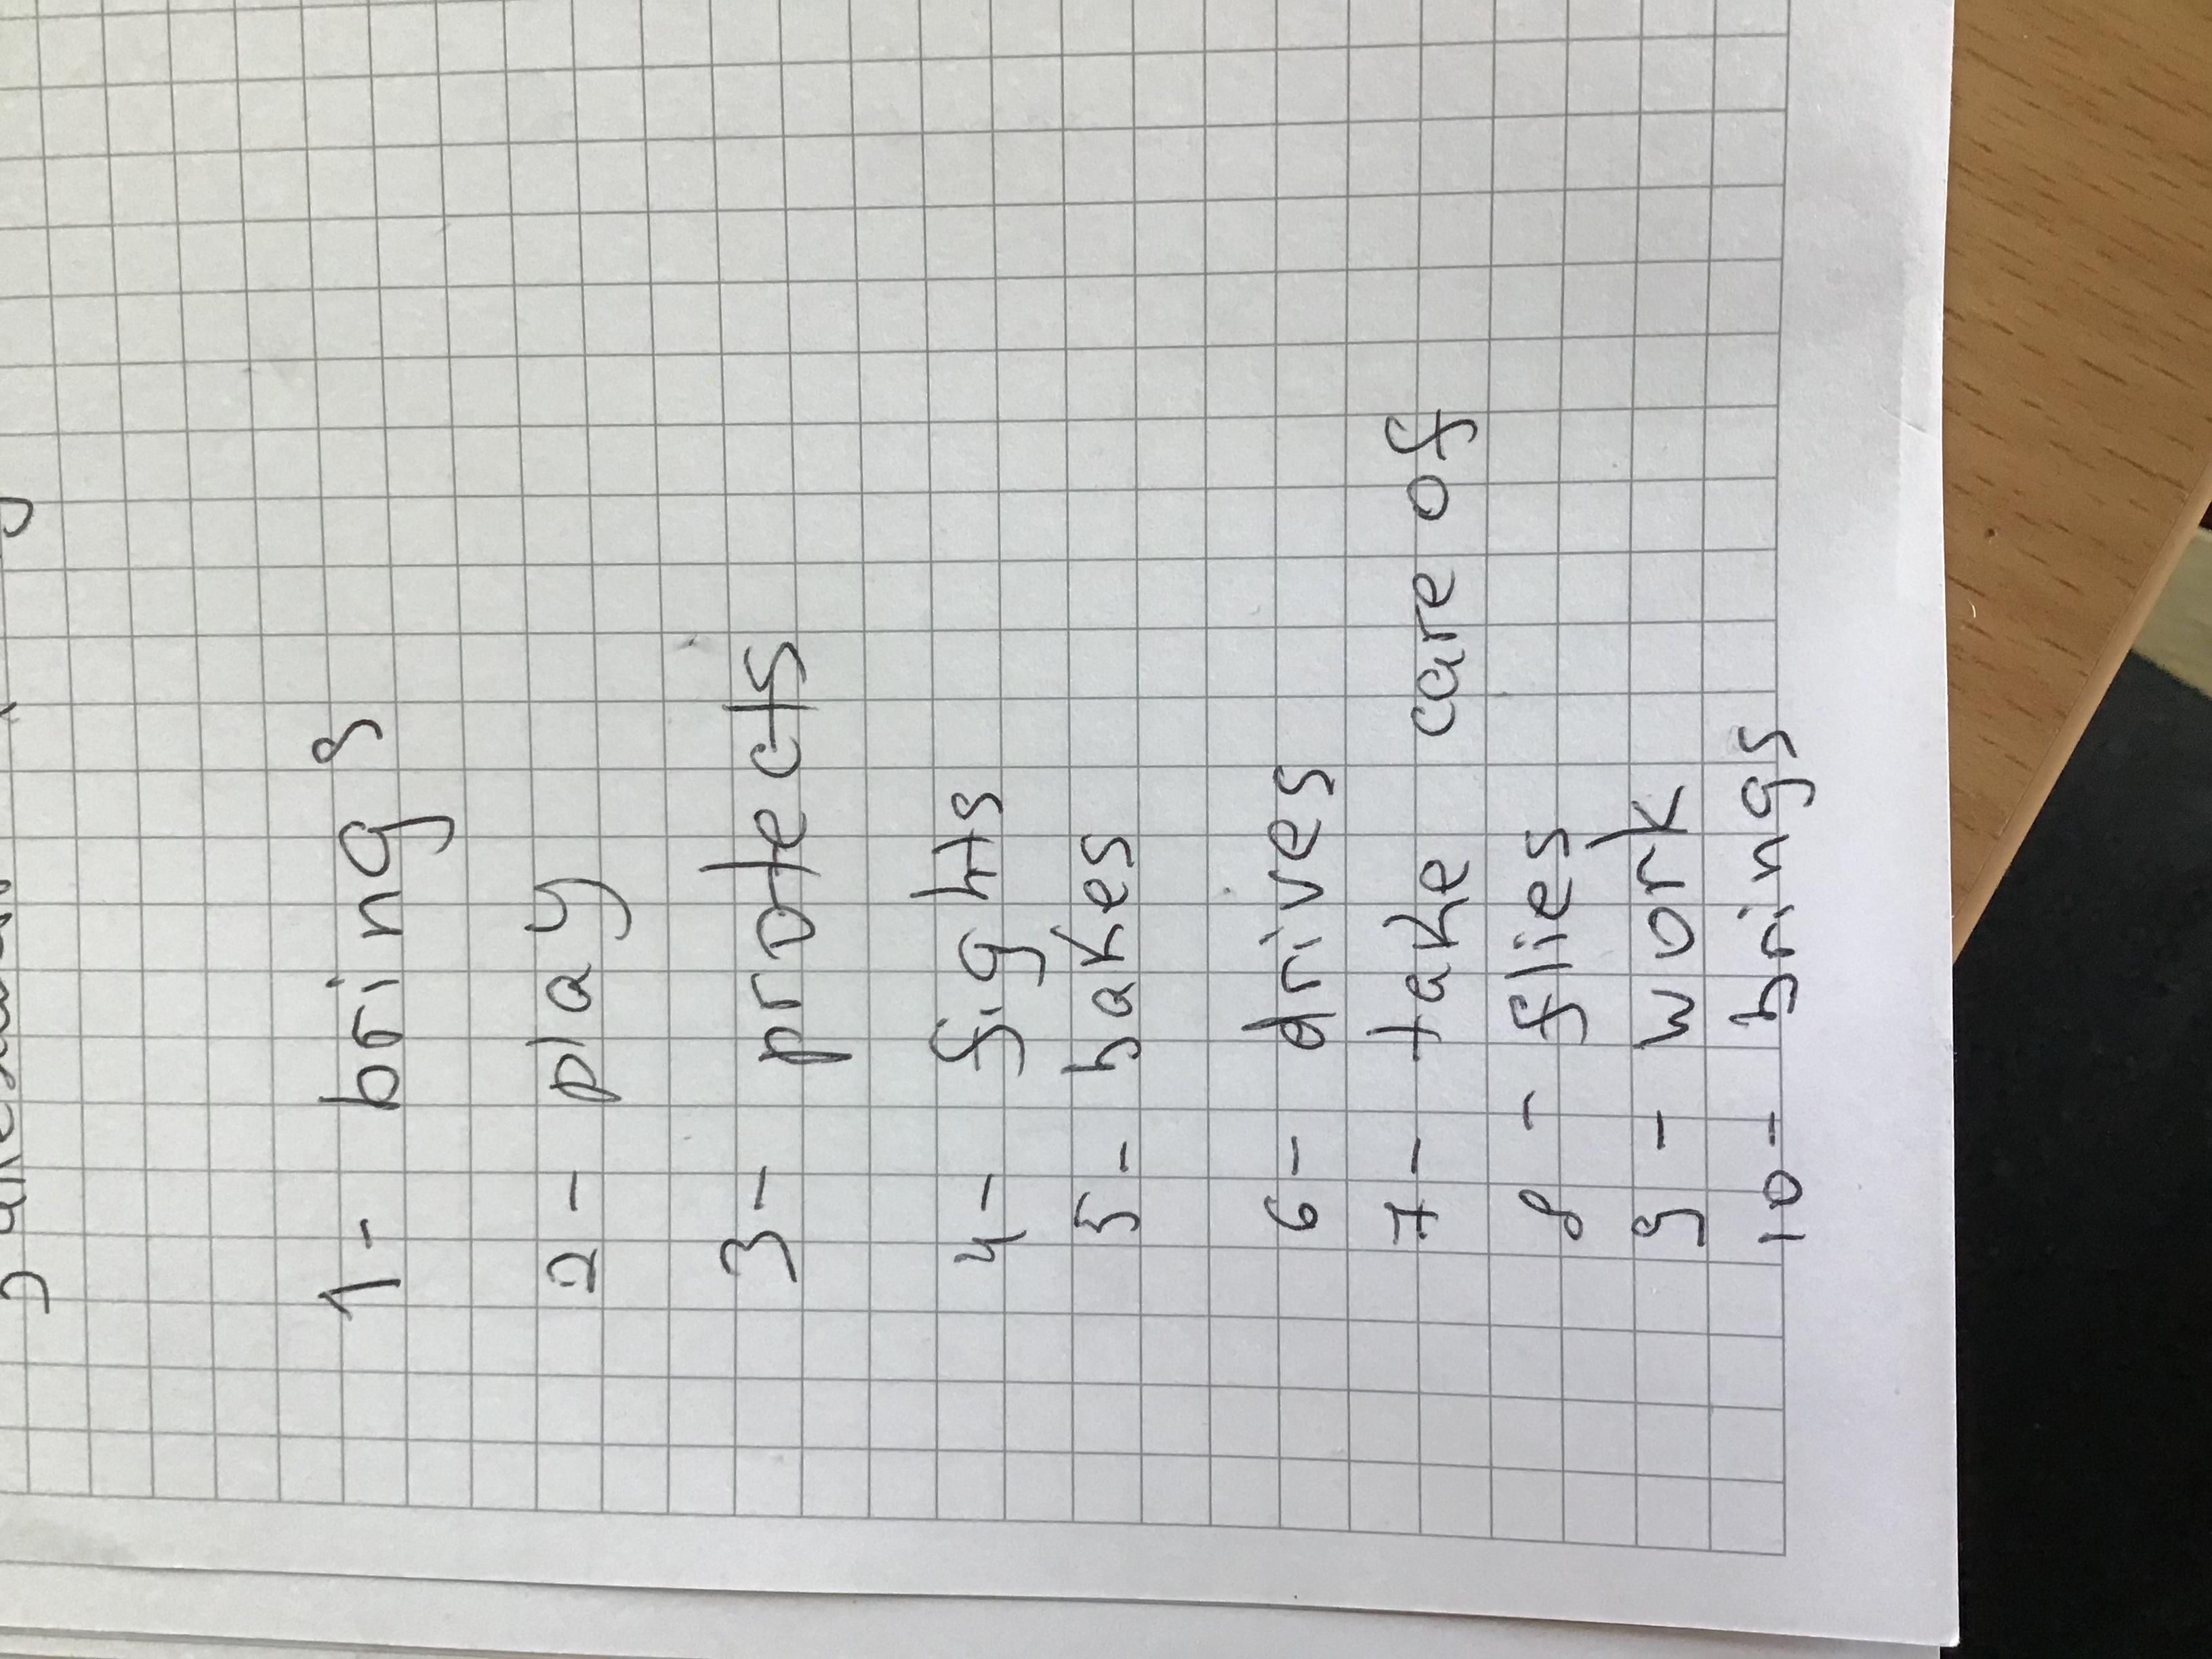 1- brings
2- play
3- protects
4- fights
5- bakes
6- drives
7- take care of
8- flies
9- work
10- brings